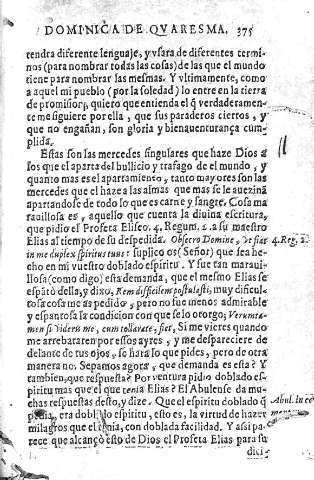 DOMINICA DE QVARESMA. 375
tendra diferente lenguaje, y vsara de diferentes termi-
nos (para nombrar todas las cosas) de las que el mundo
tiene para nombrar las mesmas. Y vltimamente, como
a aquel mi pueblo (por la soledad) lo entre en la tierra
de promission, quiero que entienda el q̃ verdaderamen-
te me siguiere por ella, que sus paraderos ciertos, y
que no engañan, son gloria y bienauenturança cũ-
plida.
Estas son las mercedes singulares que haze Dios a
los que el aparta del bullicio y trafago de el mundo, y
quanto mas es el apartamiento, tanto mayores son las
mercedes que el haze a las almas que mas se le auezinã
apartandose de todo lo que es carne y sangre. Cosa ma
rauillosa es, aquello que cuenta la diuina escritura,
que pidio el Profeta Eliseo. 4. Regum. 2. a su maestro
Elias al tiempo de su despedida. Obsecro Domine, vt fiat
in me duplex spiritus tuus: suplico os (Señor) que sea he-
cho en mi vuestro doblado espiritu. Y fue tan maraui-
llosa (como digo) esta demanda, que el mesmo Elias se
espãtò della, y dixo, Rem difficilem postulasti, muy dificul-
tosa cosa me as pedido, pero no fue menos admirable
y espantosa la condicion con que se lo otorgo; Verumta-
men si videris me, cum tollar a te, fiet, Si me vieres quando
me arrebataren por essos ayres, y me despareciere de
delante de tus ojos, se hara lo que pides, pero de otra
manera no. Sepamos agora, que demanda es esta? Y
tambien, que respuesta? Por ventura pidio doblado es-
piritu mas que el que tenia Elias? El Abulense da mu-
chas respuestas desto, y dize. Que el espiritu doblado q̃
pedia, era doblado espiritu, esto es, la virtud de hazer
milagros que el tenia, con doblada facilidad. Y assi pa-
rece que alcançò esto de Dios el Profeta Elias para su
dici-
4. Reg. 2.
Abul. in